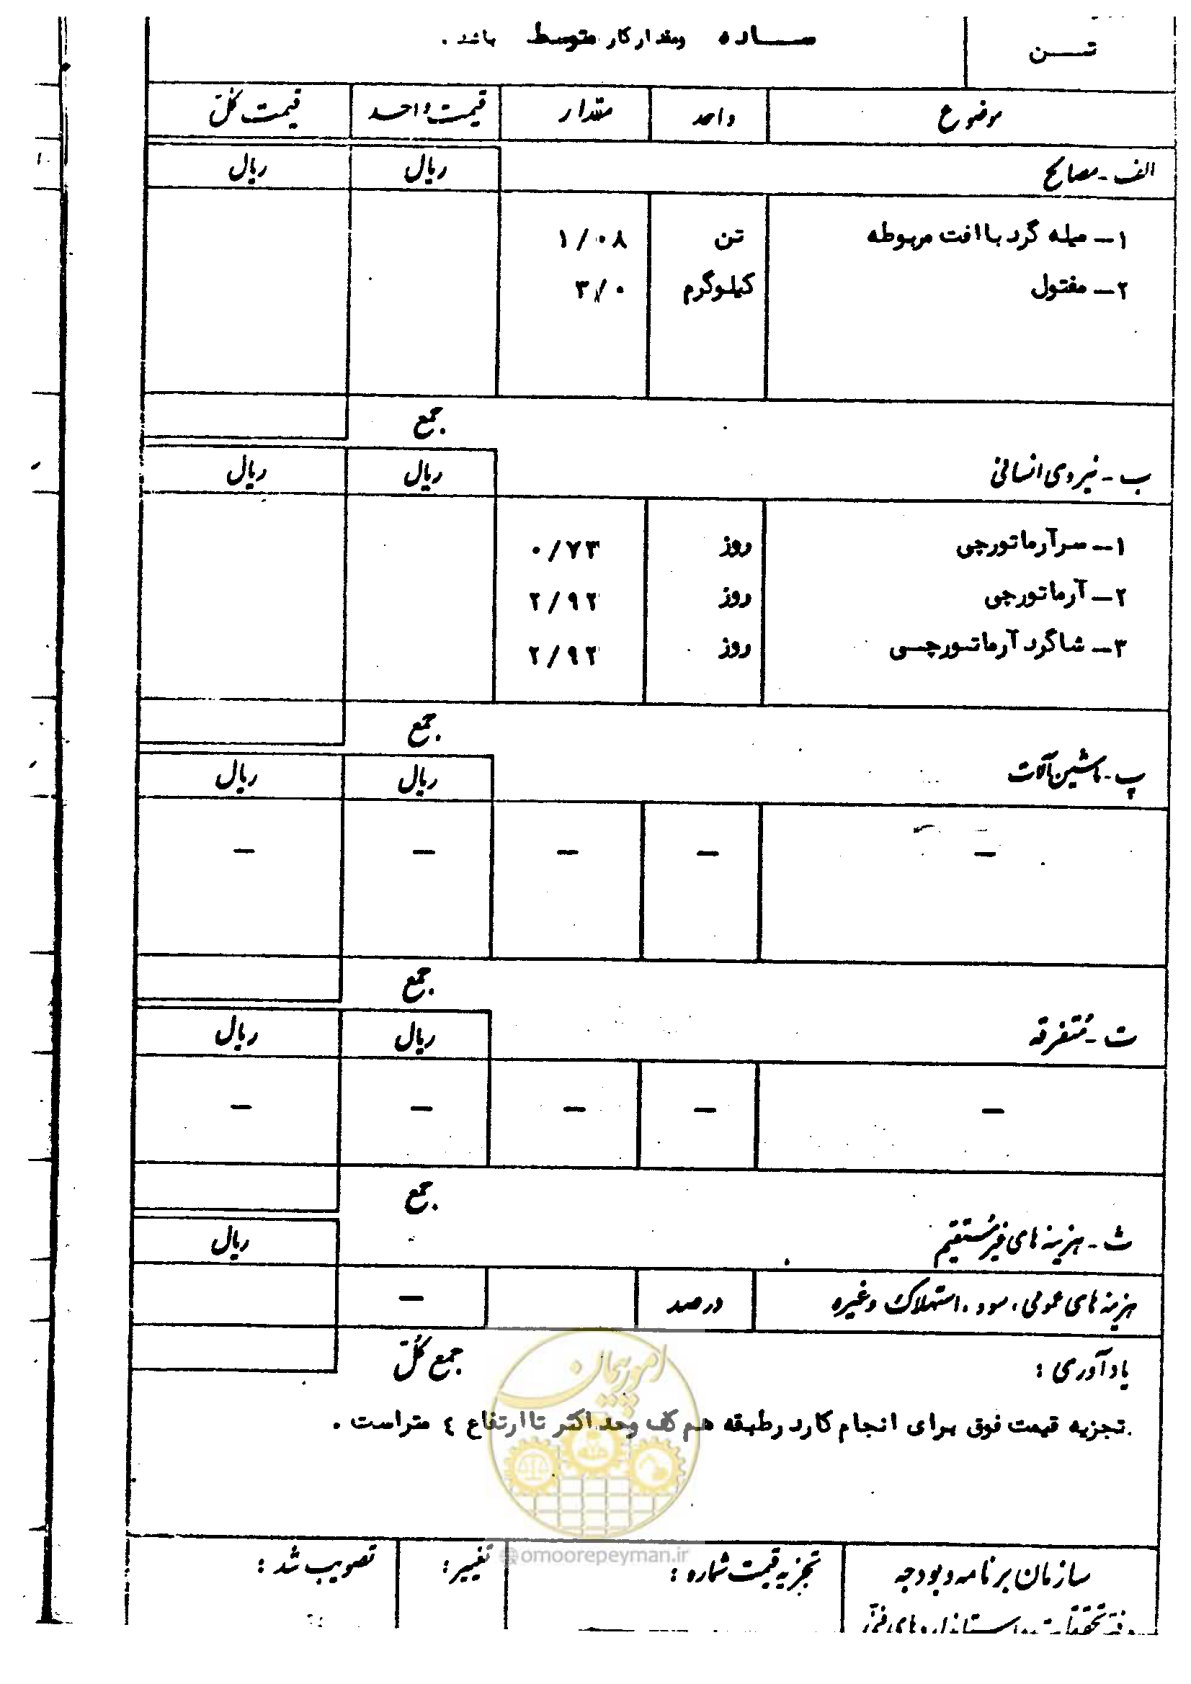 ساده ومقدارکار متوسط باشد .
تن
موضوع واحد مقدار قیمت واحد قیمت کل
الف - مصالح ریال ریال
۱- میله گرد با افت مربوطه تن ۱/۰۸
۲- مفتول کیلوگرم ۳/۰
جمع
ب - نیروی انسانی ریال ریال
۱- سرآرماتورچی روز ۰/۷۳
۲- آرماتورچی روز ۲/۹۲
۳- شاگرد آرماتورچی روز ۲/۹۲
جمع
پ - ماشین آلات ریال ریال
- - - - -
جمع
ت - متفرقه ریال ریال
- - - - -
جمع
ث - هزینه های غیرمستقیم ریال
هزینه های عمومی ، سود ، استهلاک وغیره درصد -
جمع کل
یادآوری :
تجزیه قیمت فوق برای انجام کار در طبقه هم کف وحداکثر تا ارتفاع ٤ متراست .
omoorepeyman.ir
امور پیمان
سازمان برنامه و بودجه تجزیه قیمت شماره : تغییر : تصویب شد :
دفتر تحقیقات و استانداردهای فنی